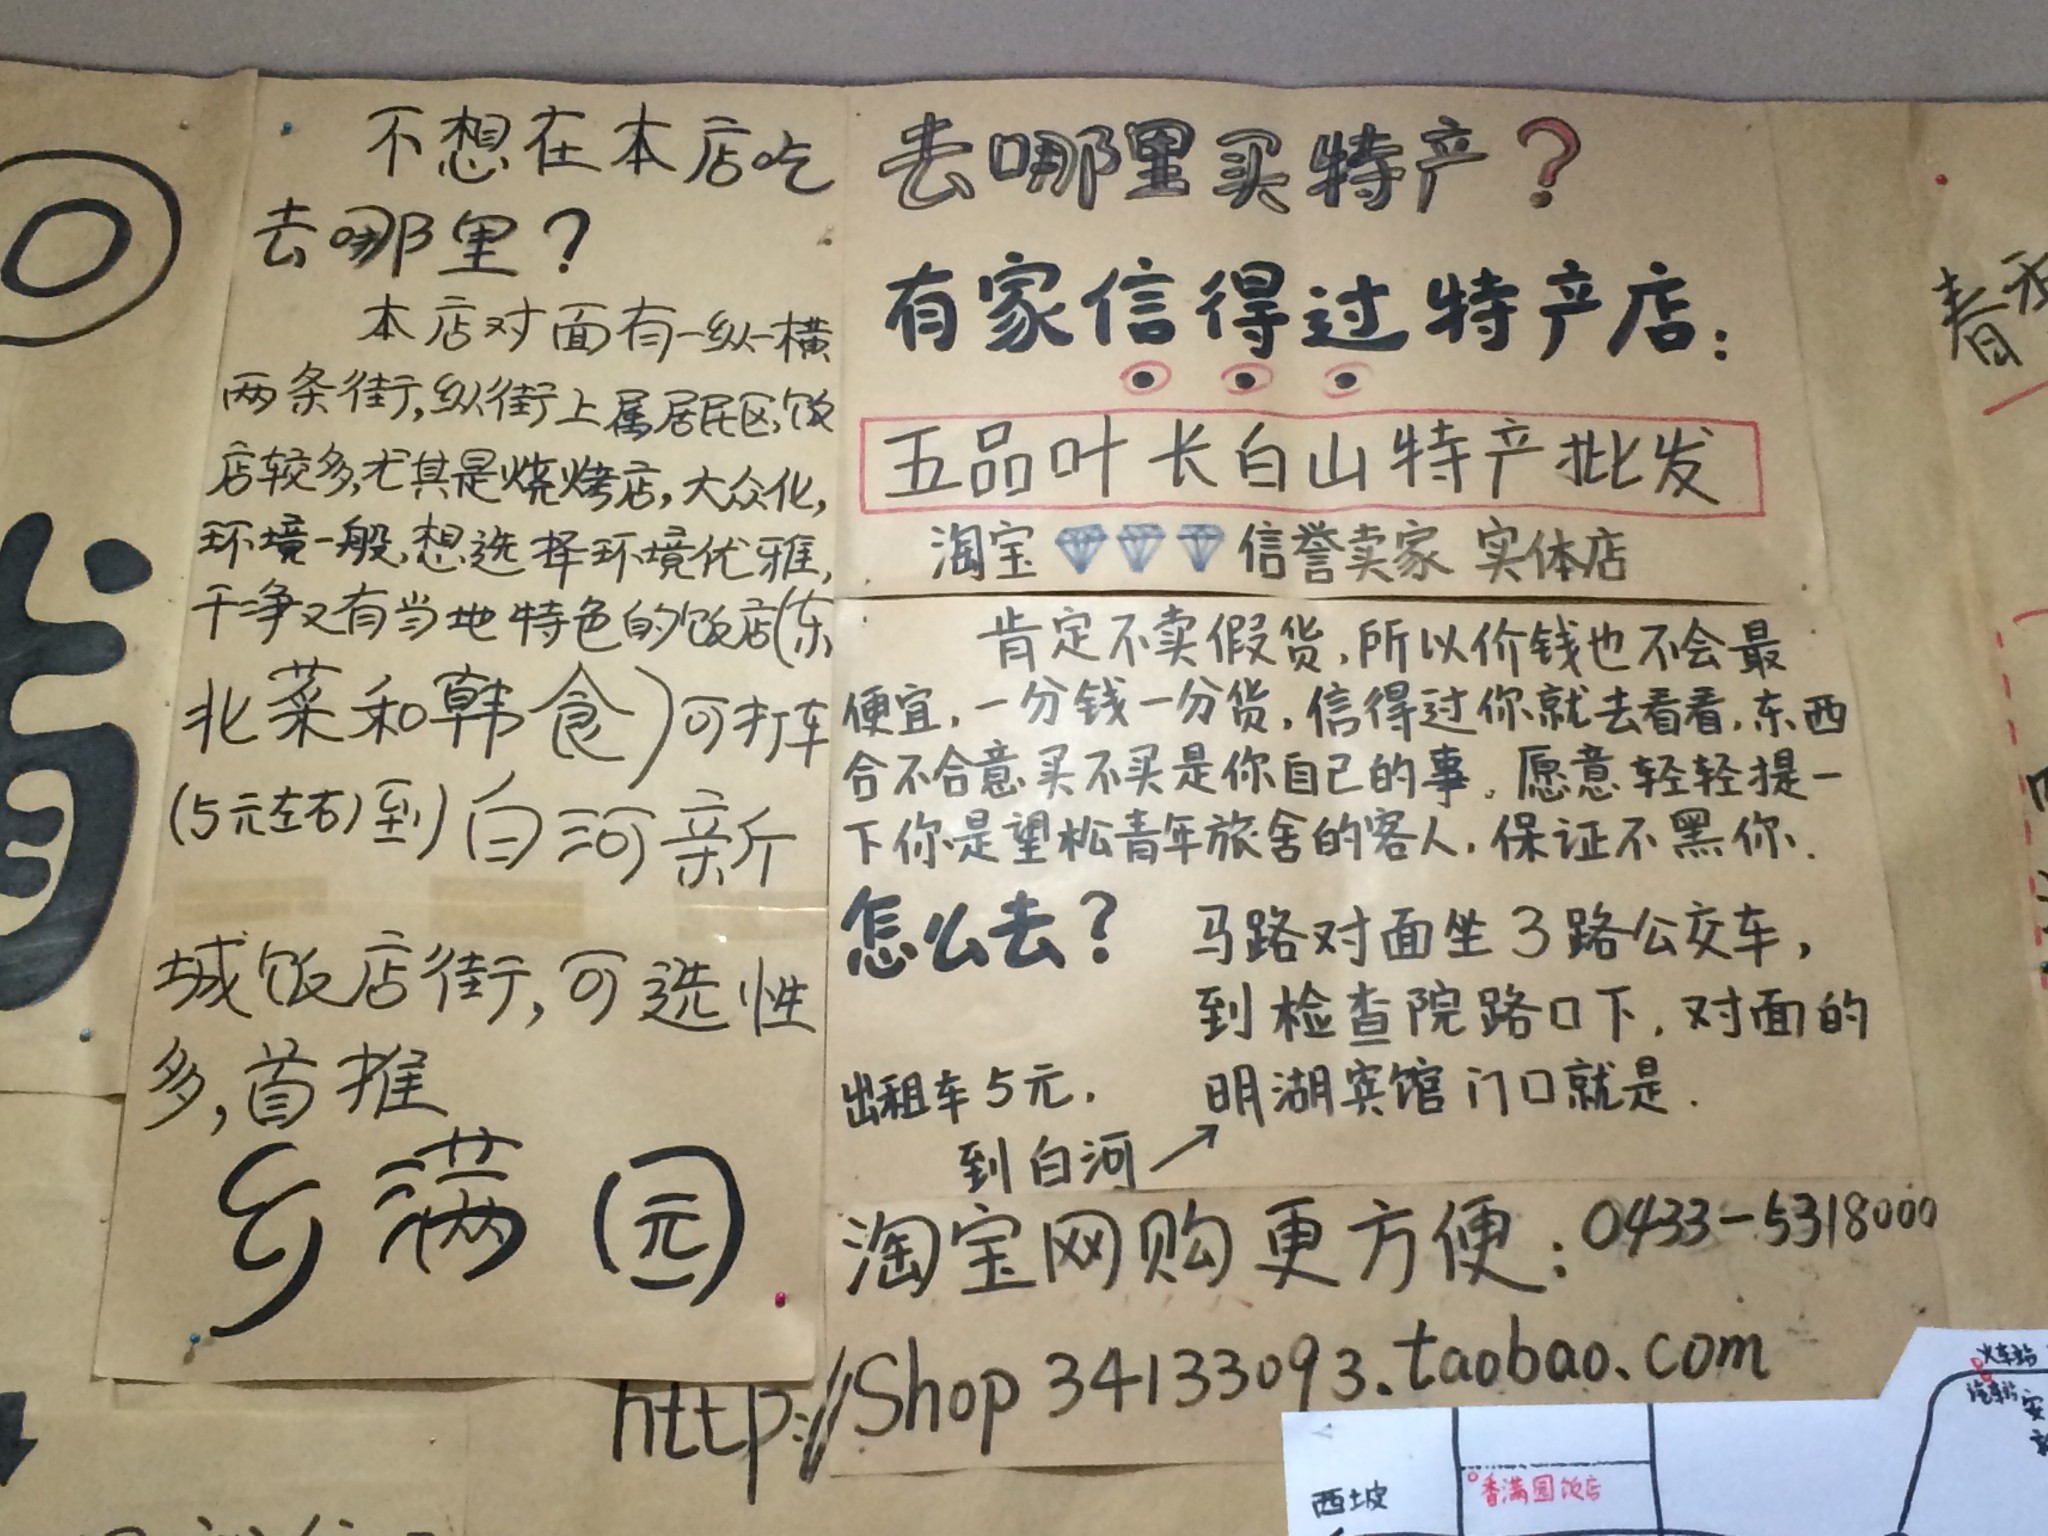 不想在本店吃
去哪里?
本店对面有一纵一横
两条街,纵街上属居民区,饭
店较多,尤其是烧烤店,大众化,
环境一般,想选择环境优雅,
干净又有当地特色的饭店(东
北菜和韩食)可打车
(5元左右)到白河新
城饭店街,可选性
多,首推
乡满园
去哪里买特产?
有家信得过特产店:
五品叶长白山特产批发
淘宝 信誉卖家 实体店
肯定不卖假货,所以价钱也不会最
便宜,一分钱一分货,信得过你就去看看,东西
合不合意买不买是你自己的事。愿意轻轻提一
下你是望松青年旅舍的客人,保证不黑你.
怎么去?
马路对面坐3路公交车,
到检查院路口下,对面的
明湖宾馆门口就是.
出租车5元,
到白河
淘宝网购更方便:0433-5318000
http://Shop34133093.taobao.com
春
火车站
西坡
香满园饭店